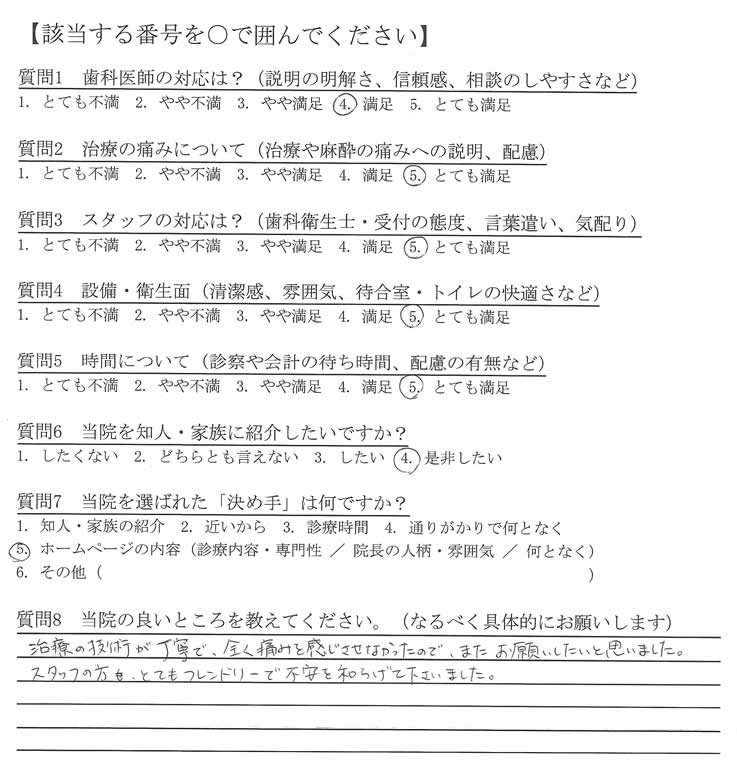 【該当する番号を○で囲んでください】
質問1 歯科医師の対応は？（説明の明解さ、信頼感、相談のしやすさなど）
1. とても不満 2. やや不満 3. やや満足 4. 満足 5. とても満足
質問2 治療の痛みについて（治療や麻酔の痛みへの説明、配慮）
1. とても不満 2. やや不満 3. やや満足 4. 満足 5. とても満足
質問3 スタッフの対応は？（歯科衛生士・受付の態度、言葉遣い、気配り）
1. とても不満 2. やや不満 3. やや満足 4. 満足 5. とても満足
質問4 設備・衛生面（清潔感、雰囲気、待合室・トイレの快適さなど）
1. とても不満 2. やや不満 3. やや満足 4. 満足 5. とても満足
質問5 時間について（診察や会計の待ち時間、配慮の有無など）
1. とても不満 2. やや不満 3. やや満足 4. 満足 5. とても満足
質問6 当院を知人・家族に紹介したいですか？
1. したくない 2. どちらとも言えない 3. したい 4. 是非したい
質問7 当院を選ばれた「決め手」は何ですか？
1. 知人・家族の紹介 2. 近いから 3. 診療時間 4. 通りがかりで何となく
5. ホームページの内容（診療内容・専門性 ／ 院長の人柄・雰囲気 ／ 何となく）
6. その他（ ）
質問8 当院の良いところを教えてください。（なるべく具体的にお願いします）
治療の技術が丁寧で、全く痛みを感じさせなかったので、またお願いしたいと思いました。
スタッフの方も、とてもフレンドリーで不安を和らげて下さいました。